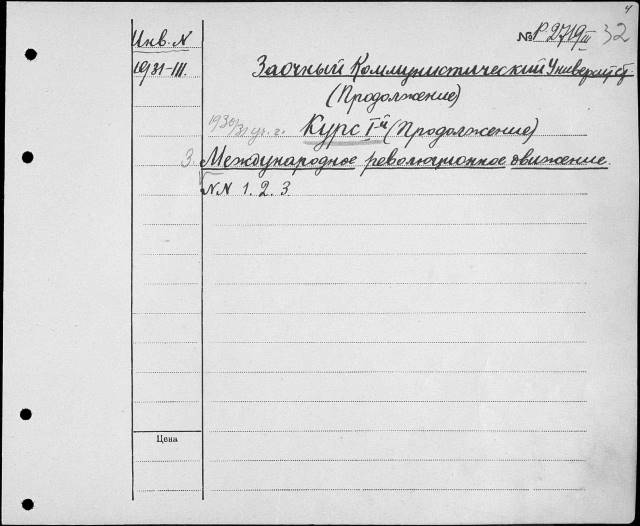 4
Инв. N
№ Р 2719 III 32
1931-III.
Заочный Коммунистический Университет
(Продолжение)
1930/31 уч. г. Курс I-й (Продолжение)
3. Международное революционное движение.
NN 1. 2. 3.
Цена